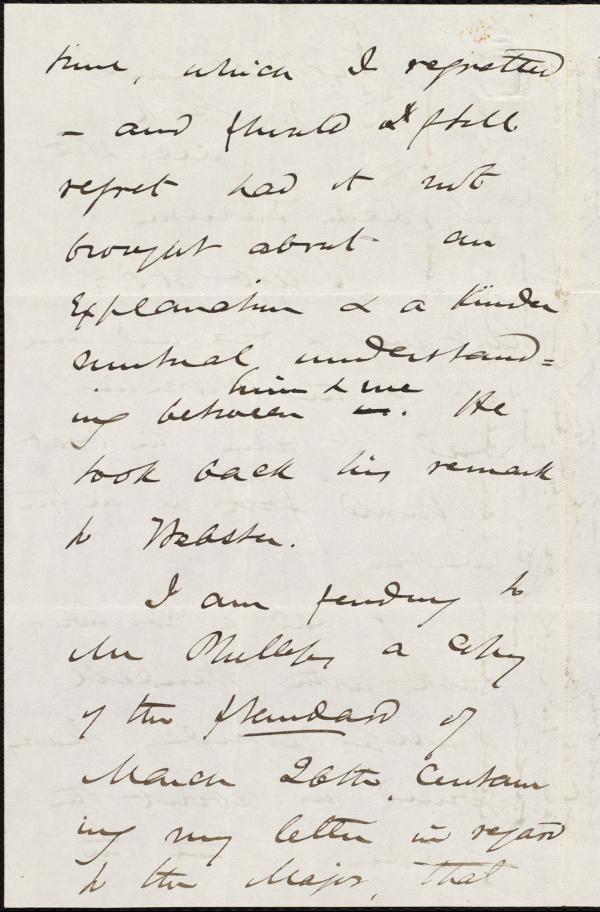 time, which I regretted
- and should still
regret had it not
brought about an
explanation & a kinder
mutual understand=
ing between him & me. He
took back his remark
to Webster.
I am sending to
Mr Phillips a copy
of the Standard of
March 26th, contain
ing my letter in regard
to the Major, that